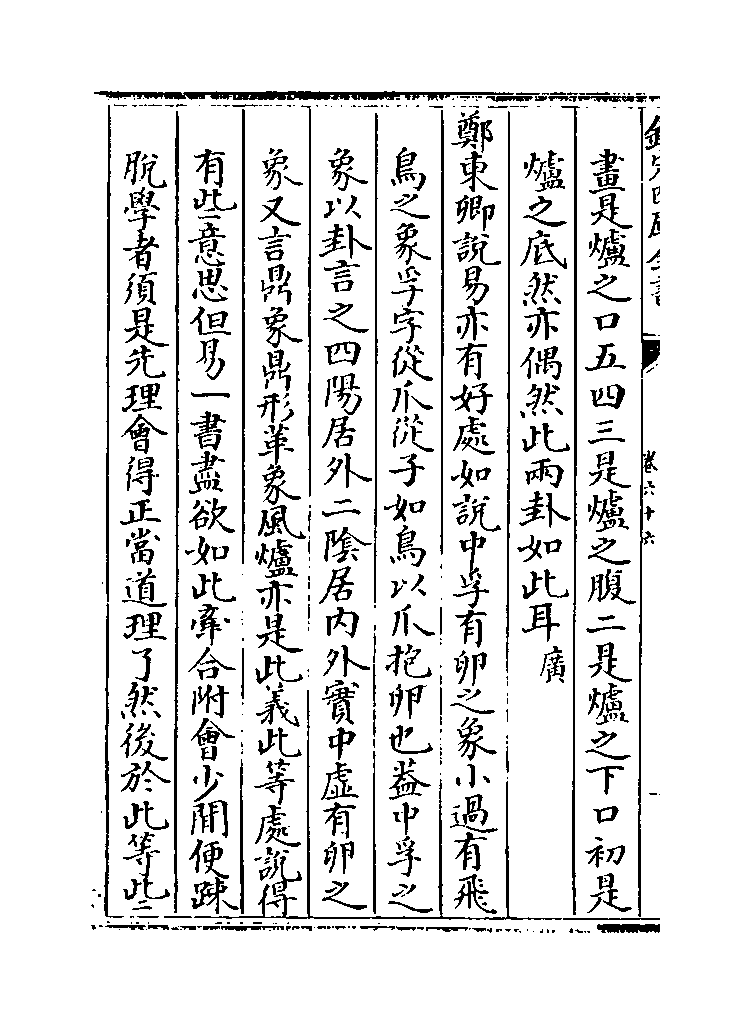 欽定四庫全書
卷六十六
畫是爐之口五四三是爐之腹二是爐之下口初是
爐之底然亦偶然此兩卦如此耳廣
鄭東卿說易亦有好處如說中孚有卵之象小過有飛
鳥之象孚字從爪從子如鳥以爪抱卵也葢中孚之
象以卦言之四陽居外二陰居内外實中虛有卵之
象又言鼎象鼎形革象風爐亦是此義此等處說得
有些意思但易一書盡欲如此牽合附會少間便踈
脫學者須是先理會得正當道理了然後於此等些